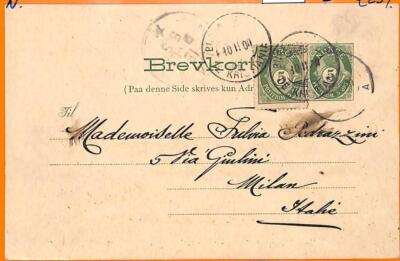 N.
Brevkort
(Paa denne Side skrives kun Adr
5
5
10 II 00
Til
Mademoiselle Fulvia Pedrazzini
5 Via Giulini
Milan
Italie